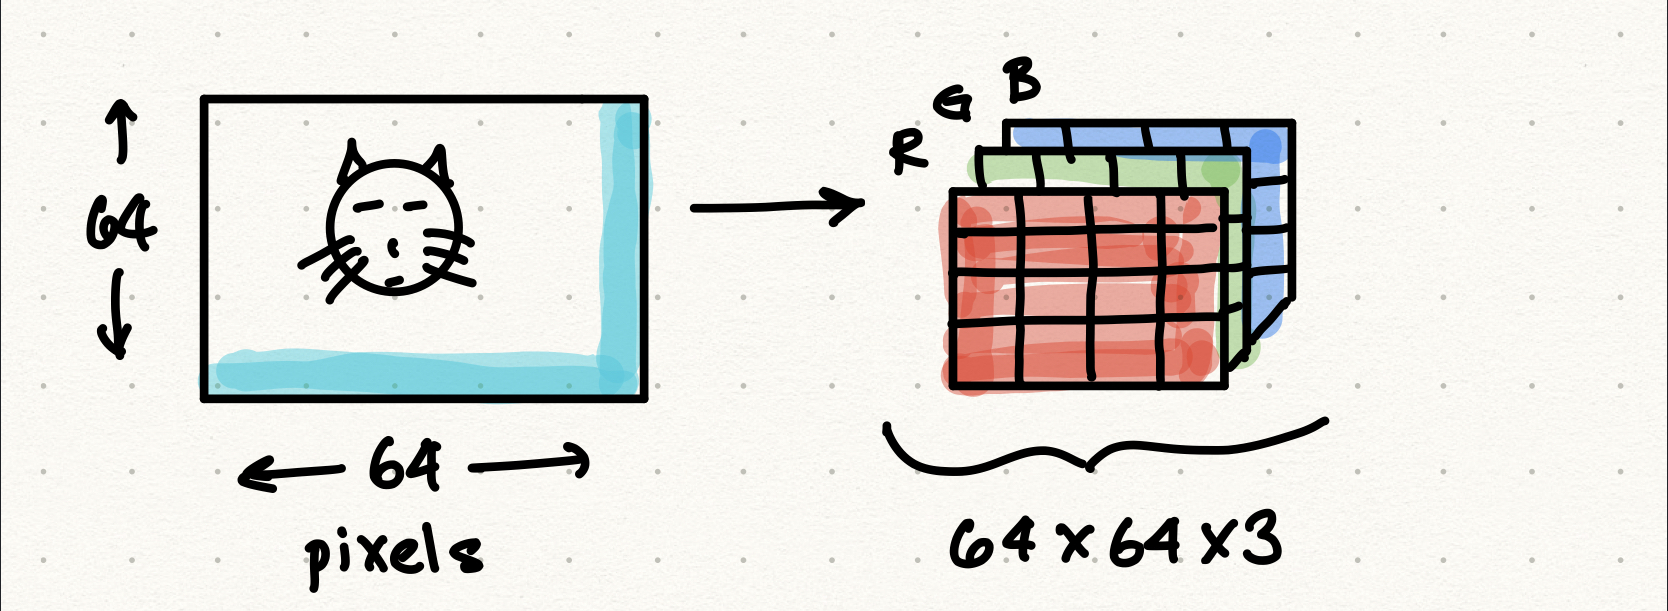 64
64
pixels
R G B
64 x 64 x 3